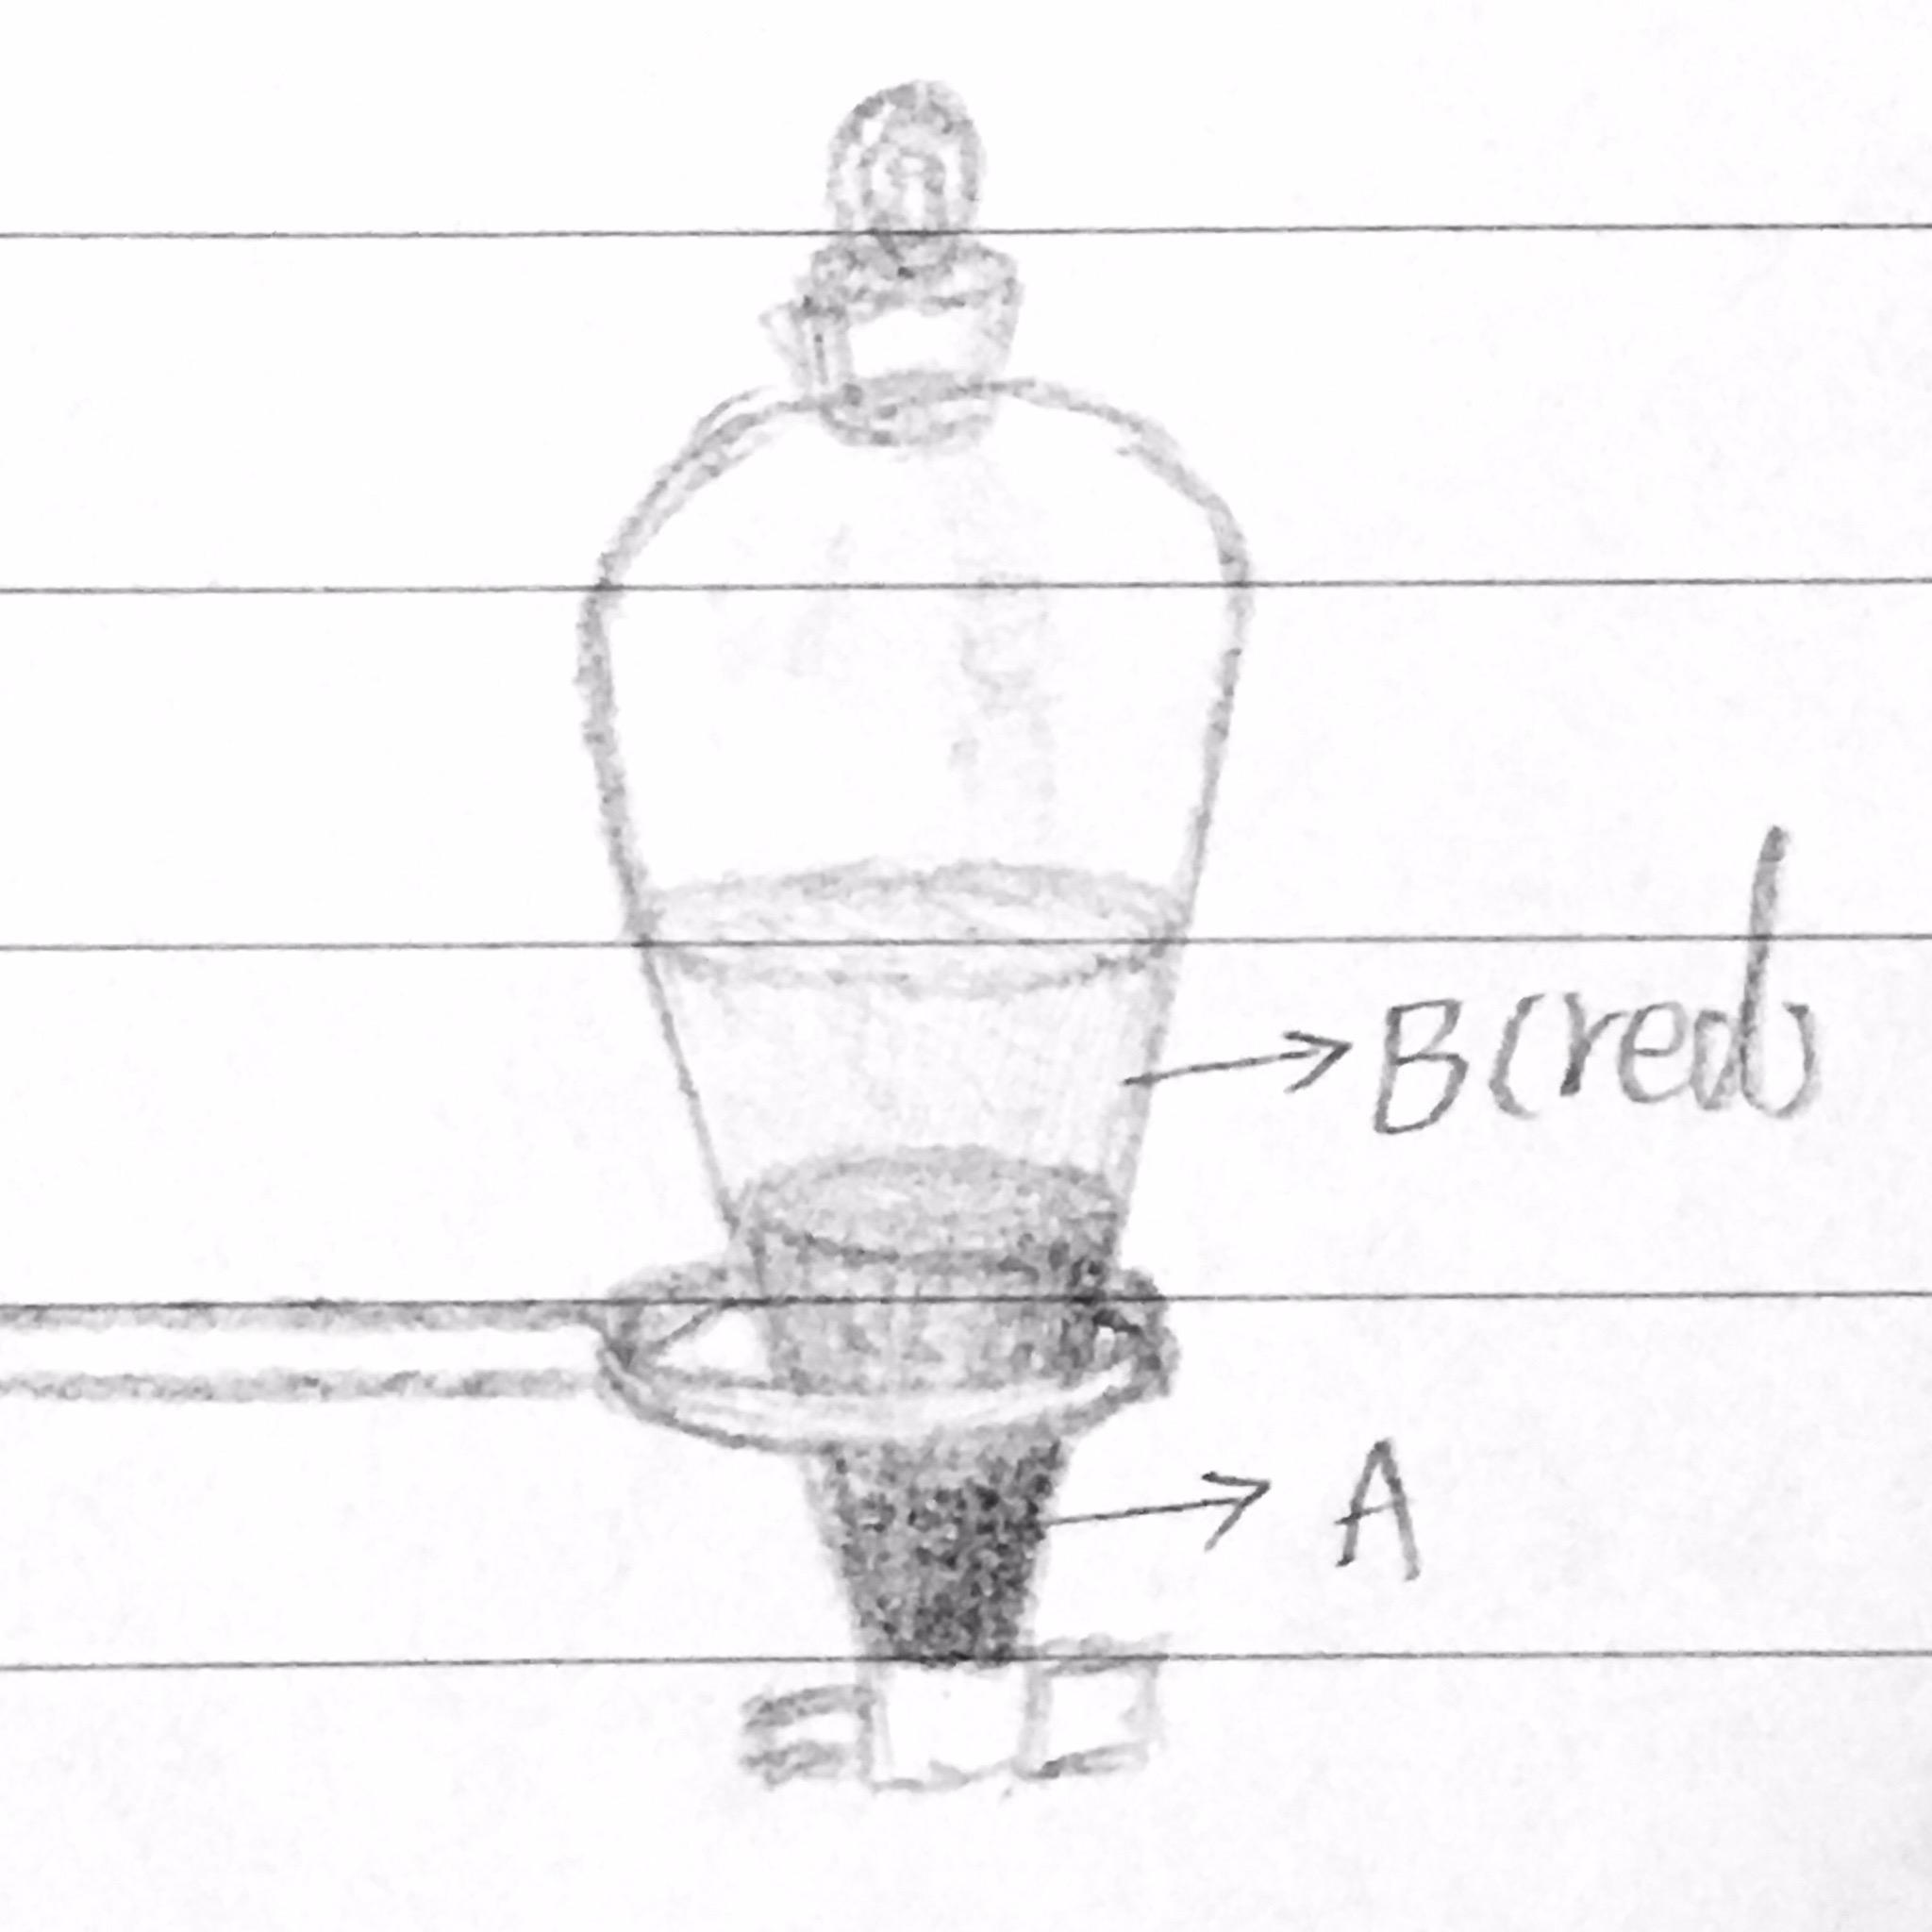 B(red)
A